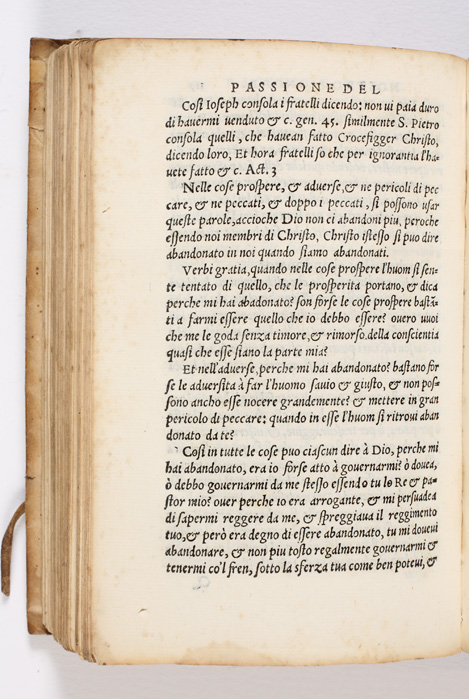 PASSIONE DEL
Cosi Ioseph consola i fratelli dicendo: non ui paia duro
di hauermi uenduto & c. gen. 45. similmente S. Pietro
consola quelli, che hauean fatto Crocefigger Christo,
dicendo loro, Et hora fratelli so che per ignorantia l'ha-
uete fatto & c. Act. 3
Nelle cose prospere, & aduerse, & ne pericoli di pec
care, & ne peccati, & doppo i peccati, si possono usar
queste parole, accioche Dio non ci abandoni piu, peroche
essendo noi membri di Christo, Christo istesso si puo dire
abandonato in noi quando siamo abandonati.
Verbi gratia, quando nelle cose prospere l'huom si sen-
te tentato di quello, che le prosperita portano, & dica
perche mi hai abādonato? son forse le cose prospere bastā-
ti a farmi essere quello che io debbo essere? ouero uuoi
che me le goda senza timore, & rimorso della conscientia
quasi che esse siano la parte mia?
Et nell'aduerse, perche mi hai abandonato? bastano for
se le aduersita à far l'huomo sauio & giusto, & non pos-
sono ancho esse nocere grandemente? & mettere in gran
pericolo di peccare: quando in esse l'huom si ritroui aban
donato da te?
Cosi in tutte le cose puo ciascun dire à Dio, perche mi
hai abandonato, era io forse atto à gouernarmi? ò douea,
ò debbo gouernarmi da me stesso essendo tu lo Re & pa-
stor mio? ouer perche io era arrogante, & mi persuadea
di sapermi reggere da me, & spreggiaua il reggimento
tuo, & però era degno di essere abandonato, tu mi doueui
abandonare, & non piu tosto regalmente gouernarmi &
tenermi co'l fren, sotto la sferza tua come ben poteui, &